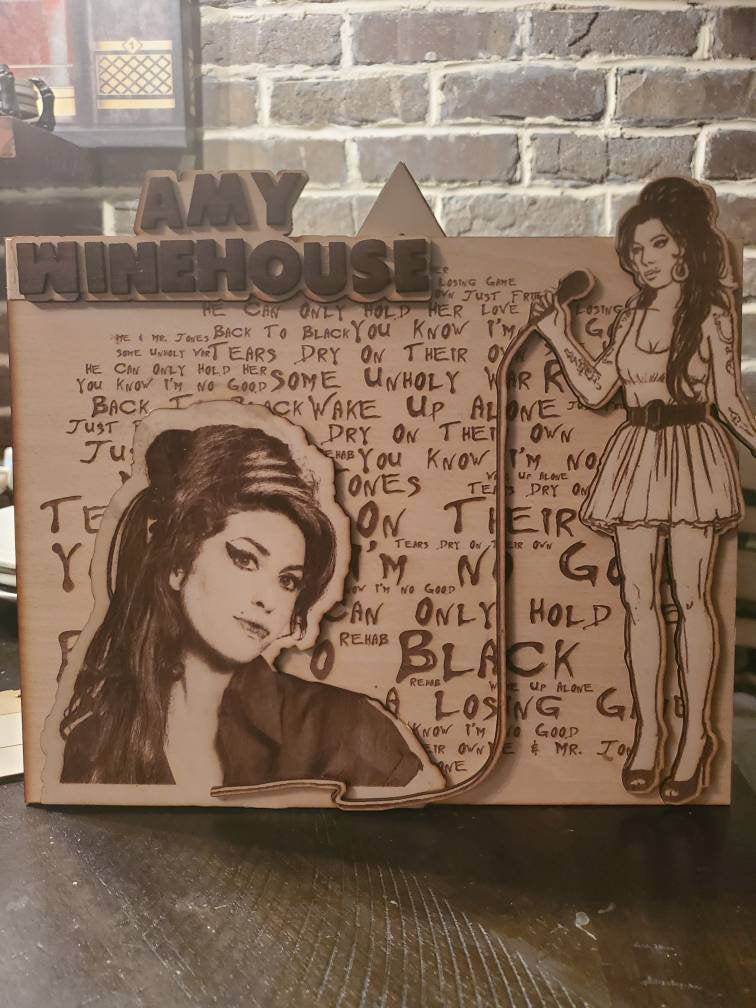 AMY
WINEHOUSE
LOSING GAME
JUST
HE CAN ONLY HOLD HER LOVE LOSING
ME & MR. JONES BACK TO BLACK YOU KNOW I'M
SOME UNHOLY WAR TEARS DRY ON THEIR
HE CAN ONLY HOLD HER SOME UNHOLY WAR
YOU KNOW I'M NO GOOD
BACK BACK WAKE UP ALONE
JUST DRY ON THEI OWN
JU REHAB YOU KNOW I'M NO
ONES UP ALONE
TEA DRY ON
TE ON THEIR
TEARS DRY ON THEIR OWN
Y 'M NO GO
I'M NO GOOD
CAN ONLY HOLD
REHAB
O BLACK
REHAB UP ALONE
A LOSING GA
KNOW I'M NO GOOD
EIR OWN E & MR. JO
ONE